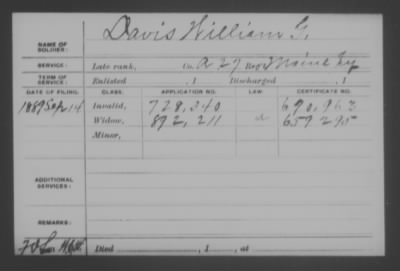 NAME OF SOLDIER: Davis William G.
SERVICE: Late rank, Co. A 27 Reg't Maine Inf
TERM OF SERVICE: Enlisted , 1 Discharged , 1
DATE OF FILING. CLASS. APPLICATION NO. LAW. CERTIFICATE NO.
1889 Sep 14 Invalid, 728,340 690,963
Widow, 892,211 659,295
Minor,
ADDITIONAL SERVICES:
REMARKS:
Died , 1 , at